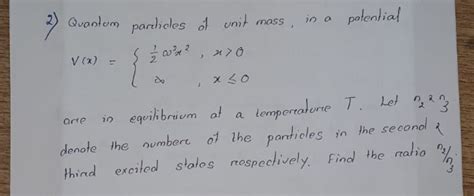 2) Quantum particles of unit mass, in a potential
V(x) = { ½ ω²x² , x>0
∞ , x ≤ 0
are in equilibrium at a temperature T. Let n₂ & n₃
denote the numbers of the particles in the second &
third excited states respectively. Find the ratio n₂/n₃